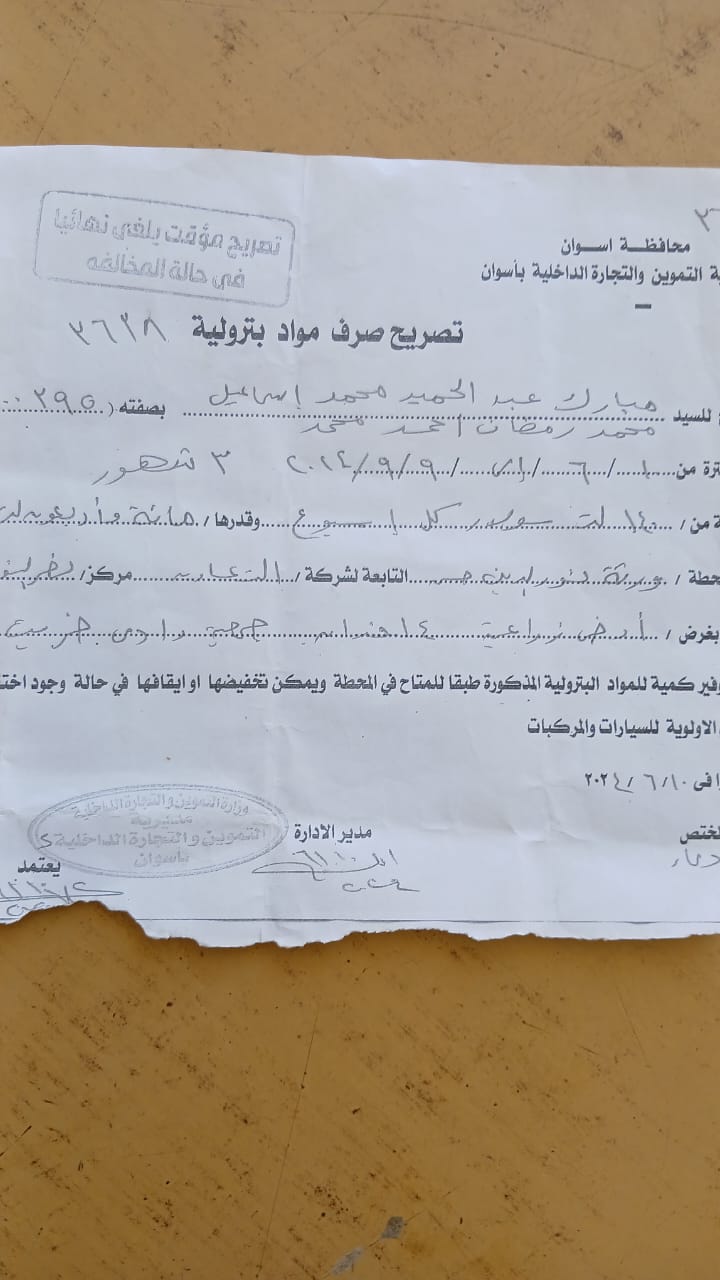 محافظة اسوان
ية التموين والتجارة الداخلية بأسوان
تصريح مؤقت يلغي نهائيا
في حالة المخالفه
تصريح صرف مواد بترولية ٣٦٣٨
للسيد مبارك عبد الحميد محمد إسماعيل بصفته (٢٩٥
محمد رمضان أحمد محمد
ترة من ١٠/٦/ ٢٠٢٤/٩/٩ ٣ شهور
ة من / ١٤٠ لتر سولار كل أسبوع وقدرها / مائة وأربعون
حطة / التابعة لشركة / التعاون مركز /
بغرض / أرض زراعية ١٤
وفير كمية للمواد البترولية المذكورة طبقا للمتاح في المحطة ويمكن تخفيضها او ايقافها في حالة وجود
الاولوية للسيارات والمركبات
ا فى ١٠/ ٦ / ٢٠٢٤
ختص مدير الادارة يعتمد
دعاء
وزارة التموين والتجارة الداخلية
مديرية
التموين والتجارة الداخلية
بأسوان